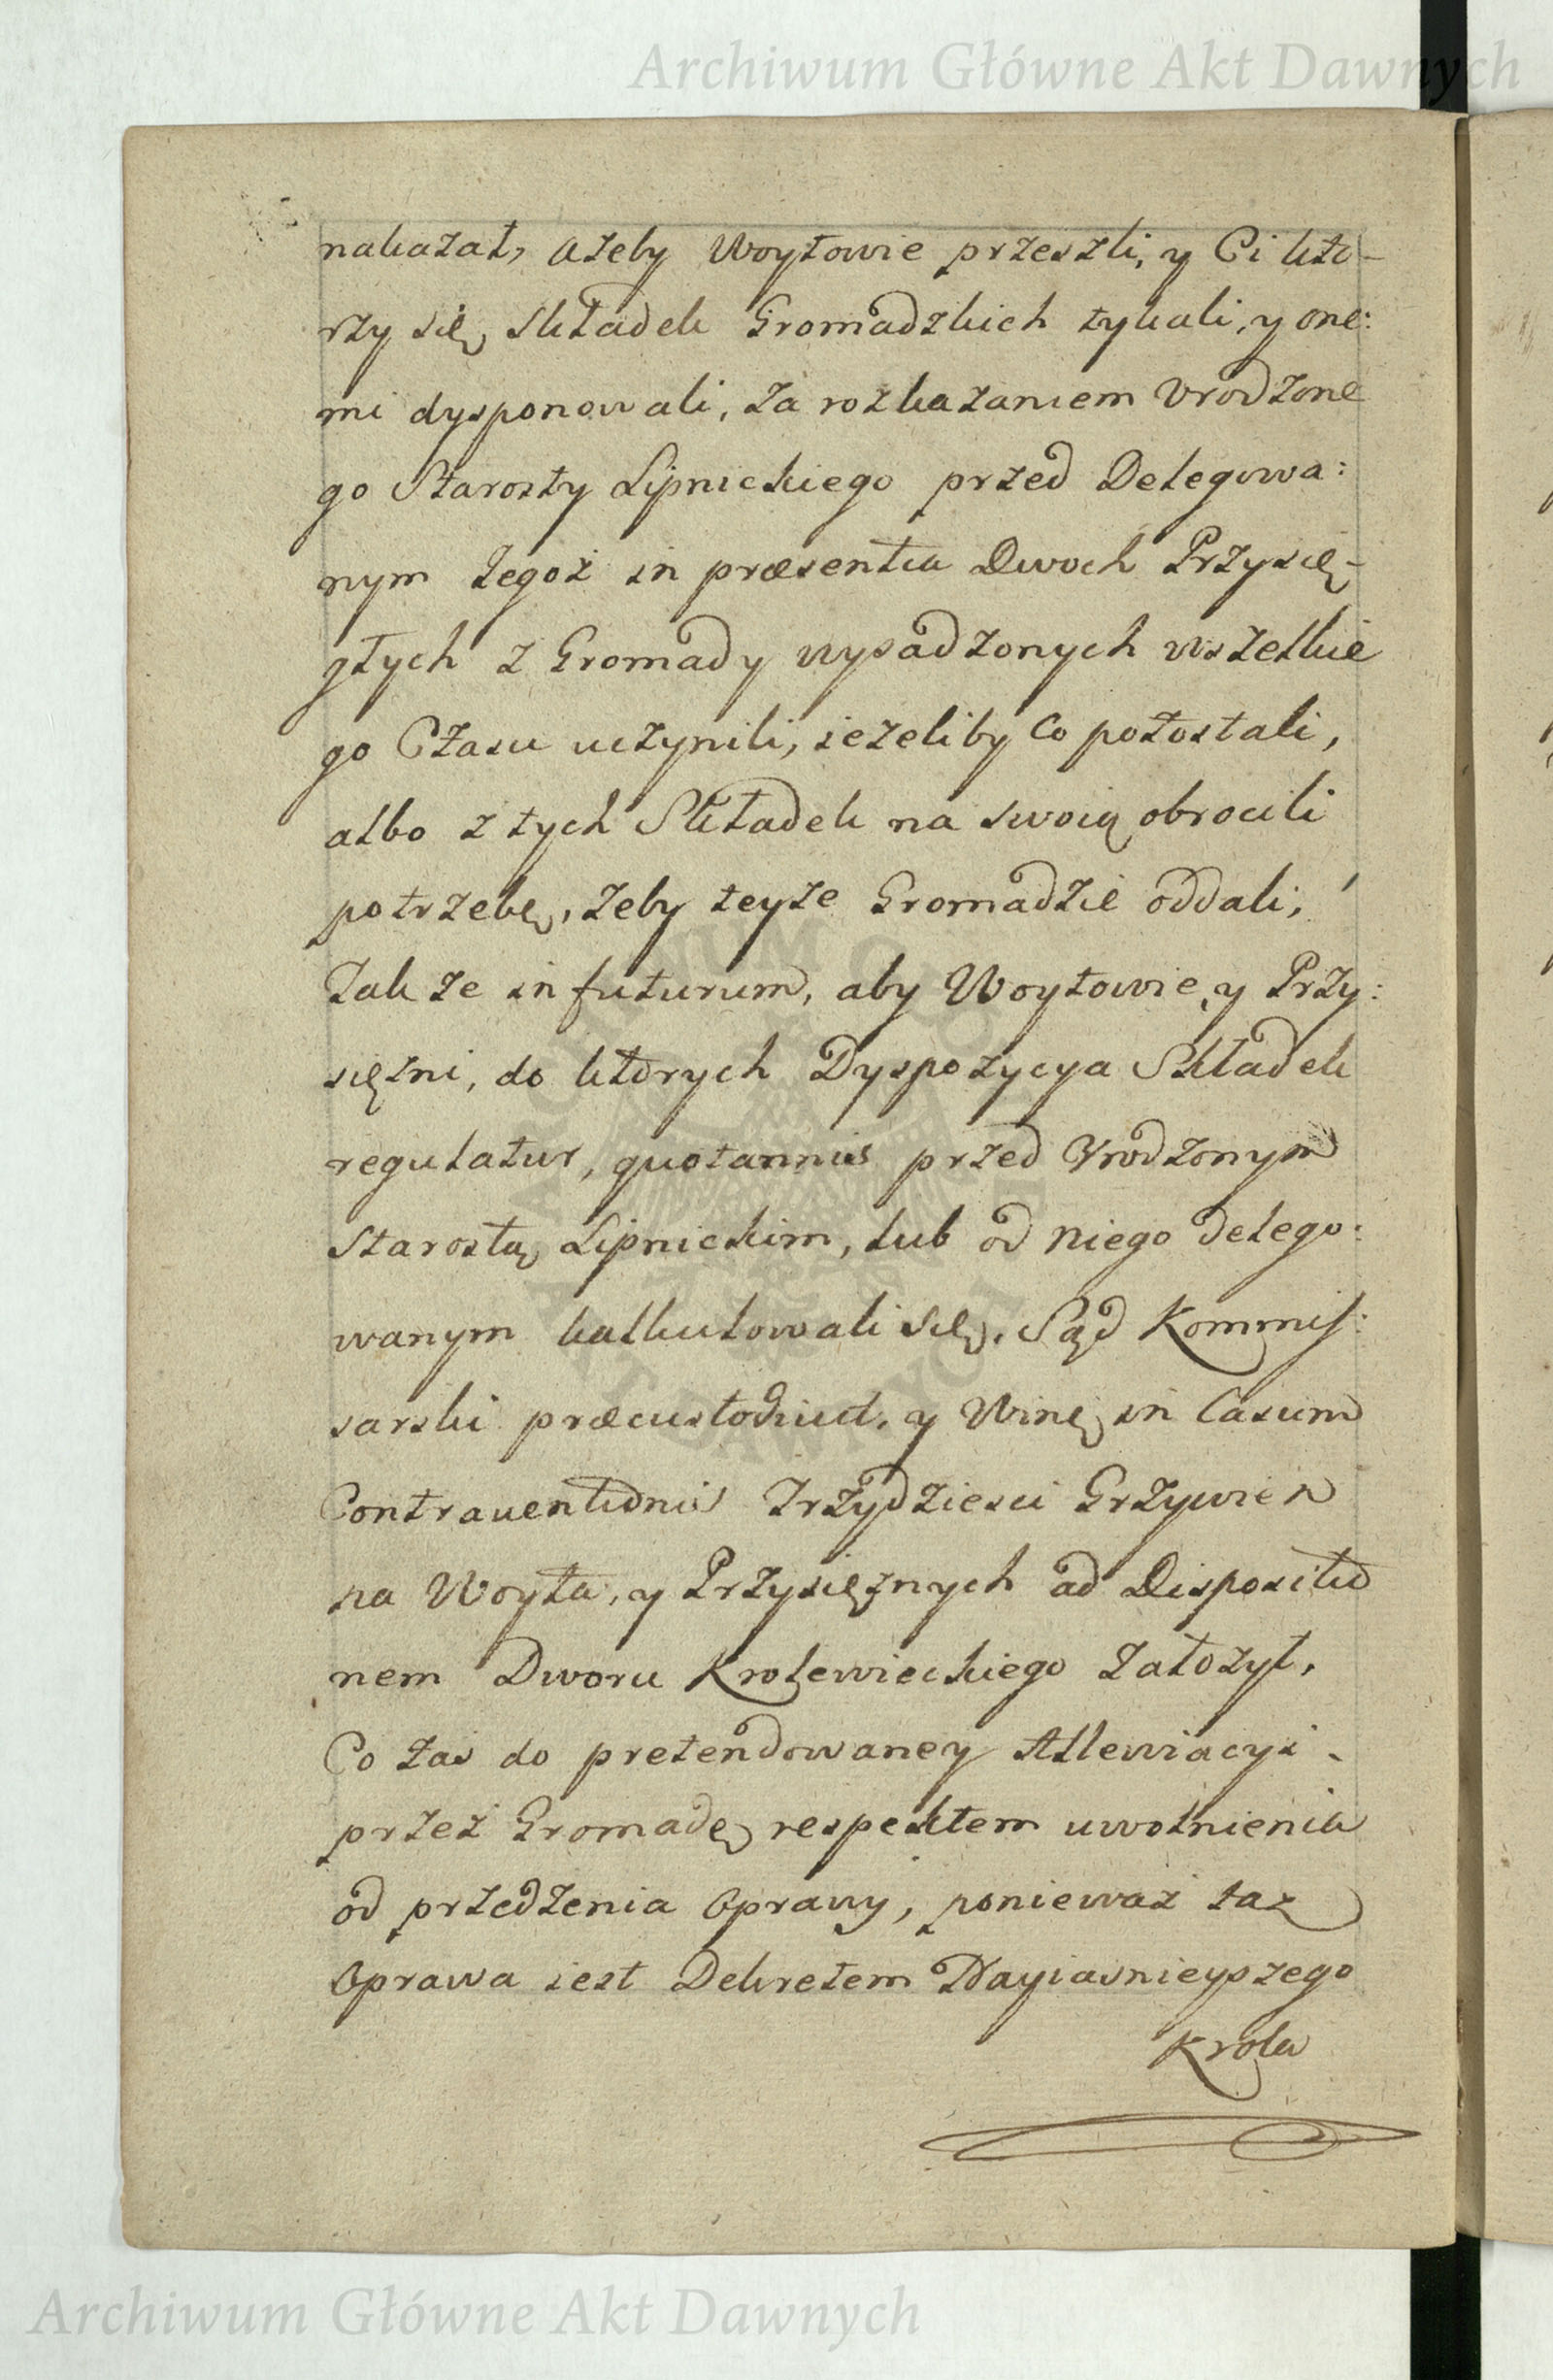 Archiwum Główne Akt Dawnych
nakazał, ażeby Woytowie przeszli, y Ci kto-
rzy się Składek Gromadzkich tykali, y one:
mi dysponowali, za rozkazaniem Urodzone
go Starosty Lipnickiego przed Delegowa:
nym tegoż in præsentia Dwoch Przysię-
głych z Gromady wysadzonych wszelkie
go Czasu uczynili, ieżeliby co pozostali,
albo z tych Składek na swoią obrocili
potrzebę, żeby teyże Gromadzie oddali,
Także in futurum, aby Woytowie, y Przy:
siężni, do ktorych Dyspozycya Składek
regulatur, quotannis przed Urodzonym
Starostą Lipnickim, lub od niego delego:
wanym kalkulowali się. Sąd Kommis:
sarski præcustodiut, y Winę in Casum
Contraventionis Trzydziesci Grzywien
na Woyta, y Przysiężnych ad Dispositio
nem Dworu Krolewieckiego założył,
Co zas do pretendowaney Allewiacyi
przez Gromadę respektem uwolnienia
od przedzenia Oprawy, ponieważ taz
Oprawa iest Dekretem Nayiasnieyszego
Krola
Archiwum Główne Akt Dawnych